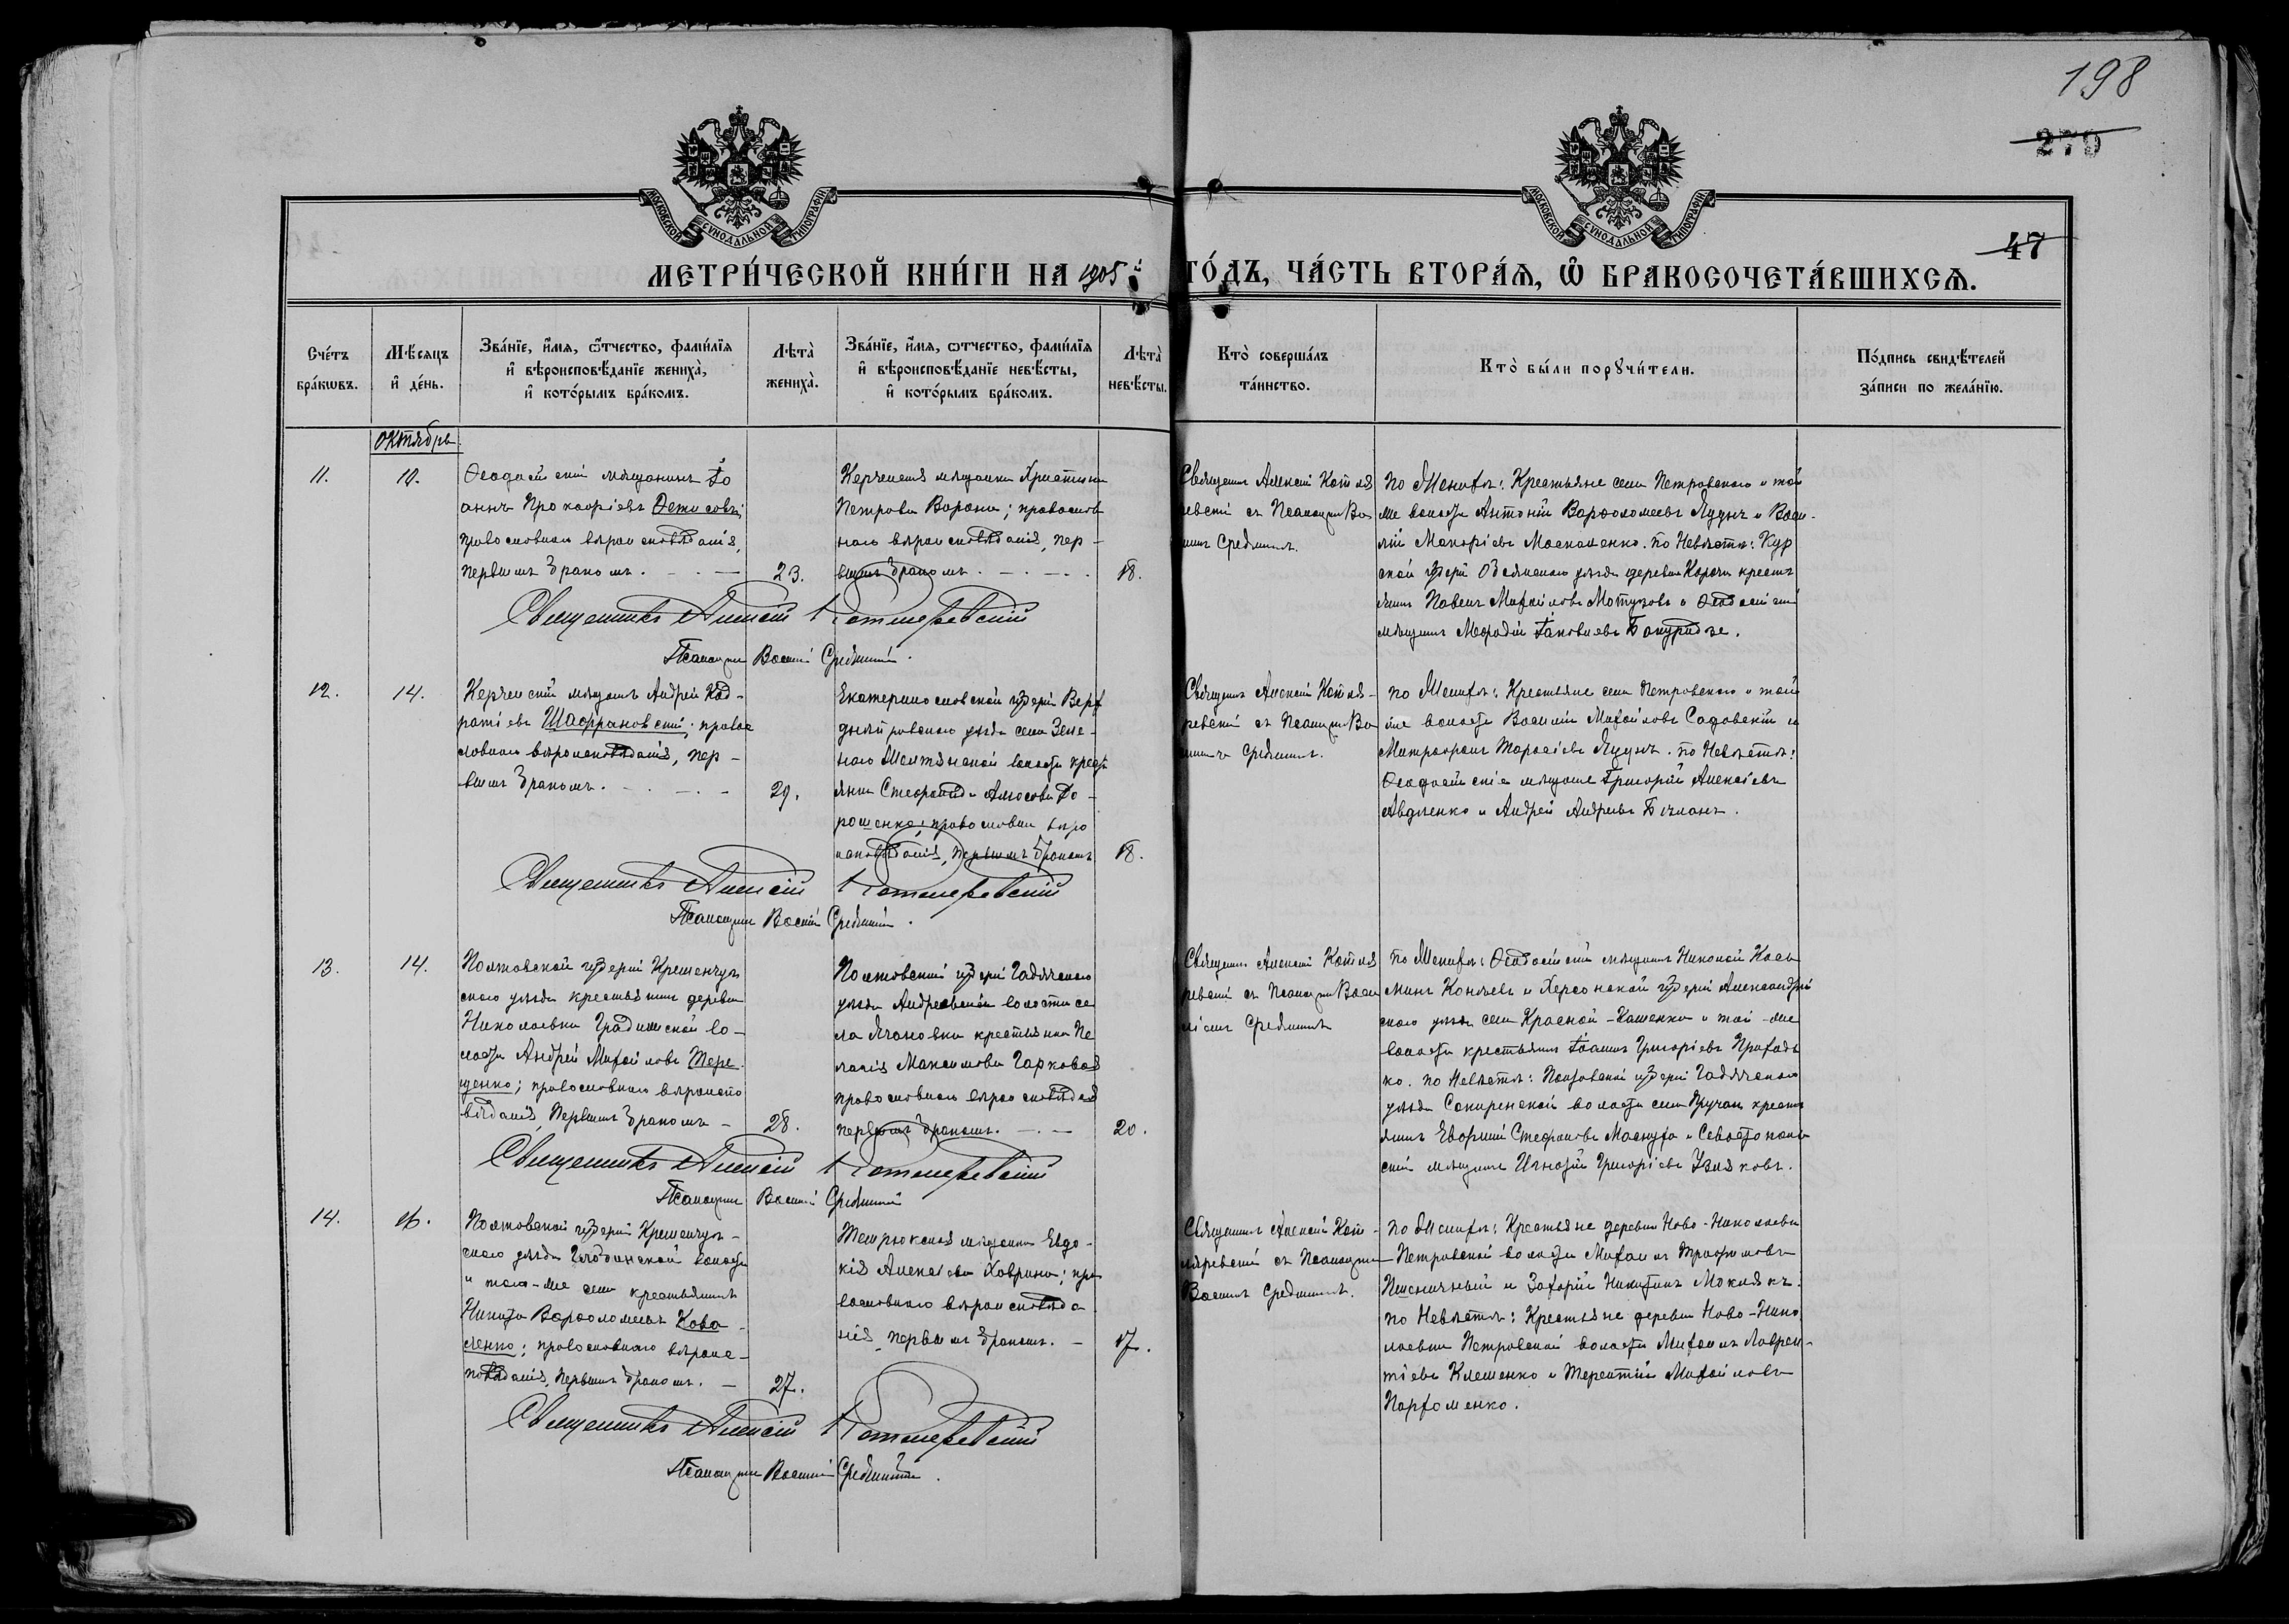 198
279
47
МОСКОВСКОЙ СѴНОДАЛЬНОЙ ТИПОГРАФІИ
МОСКОВСКОЙ СѴНОДАЛЬНОЙ ТИПОГРАФІИ
МЕТРИ́ЧЕСКОЙ КНИ́ГИ НА 1905 й ГО́ДЪ, ЧА́СТЬ ВТОРА́Ѧ, Ѡ҆ БРАКОСОЧЕТА́ВШИХСѦ.
Сче́тъ бра́кѡвъ.
Мѣ́сяцъ и҆ де́нь.
Зва́нїе, и҆́мя, ѻ҆́тчество, фами́лїя и҆ вѣроисповѣ́данїе жениха̀, и҆ кото́рымъ бра́комъ.
Лѣта̀ жениха̀.
Зва́нїе, и҆́мя, ѻ҆́тчество, фами́лїя и҆ вѣроисповѣ́данїе невѣ́сты, и҆ кото́рымъ бра́комъ.
Лѣта̀ невѣ́сты.
Кто̀ соверша́лъ та́инство.
Кто̀ бы́ли порꙋчи́тели.
По́дпись свидѣ́телей за́писи по жела́нїю.
Октябрь
11.
10.
Ѳеодосійскій мѣщанинъ Іо
аннъ Прокофіевъ Денисовъ;
православнаго вѣроисповѣданія,
первымъ бракомъ.
23.
Керченская мѣщанка Христина
Петрова Ворона; православ
наго вѣроисповѣданія, пер-
вымъ бракомъ.
18.
Священникъ Алексій Котля
ревскій съ Псаломщ. Ва
Среднимъ.
по Женихѣ: Крестьяне села Петровскаго и той
же волости Антоній Варѳоломеевъ Яцунъ и Васи-
лій Макаріевъ Москаленко. по Невѣстѣ: Кур
ской губерніи Обоянскаго уѣзда деревни крестья
нинъ Павелъ Михайловъ и Ѳеодосійскій
мѣщанинъ Меѳодій Іаковлевъ
Священникъ Алексій Котляревскій
Псаломщикъ Василій Средній.
12.
14.
Керченскій мѣщанинъ Андрей Код-
ратіевъ Шафрановскій; правос
лавнаго вѣроисповѣданія, пер-
вымъ бракомъ.
29.
Екатеринославской губерніи Верх
днѣпровскаго уѣзда села Зеле-
наго Желтянской волости кресть
янка Стефанида Амосова До-
рошенко; православнаго вѣро
исповѣданія, первымъ бракомъ
18.
Священникъ Алексій Котля-
ревскій съ Псаломщ. Ва
Среднимъ.
по Женихѣ: Крестьяне села Петровскаго и той
же волости Василій Михайловъ Садовскій и
Митрофанъ Тарасіевъ Яцунъ. по Невѣстѣ:
Ѳеодосійскіе мѣщане Григорій Алексіевъ
Авдѣенко и Андрей Андреевъ
Священникъ Алексій Котляревскій
Псаломщикъ Василій Средній.
13.
14.
Полтавской губерніи Кременчуг
скаго уѣзда крестьянинъ деревни
Николаевки Градижской во-
лости Андрей Михайловъ Тере
щенко; православнаго вѣроиспо
вѣданія, первымъ бракомъ
28.
Полтавской губерніи Гадячскаго
уѣзда Андреевской волости се
ла Лучановки крестьянка Пе
лагія Максимова Гаркавая
православнаго вѣроисповѣданія
первымъ бракомъ.
20.
Священникъ Алексій Котля
ревскій съ Псаломщ. Васи
ліемъ Среднимъ
по Женихѣ: Ѳеодосійскій мѣщанинъ Николай Кось
минъ и Херсонской губерніи Александрій
скаго уѣзда села Красной-Каменки и той-же
волости крестьянинъ Іоаннъ Григоріевъ Приходь
ко. по Невѣстѣ: Полтавской губерніи Гадячскаго
уѣзда волости села крестья
нинъ Евфимій Стефановъ и Севастополь
скій мѣщанинъ Игнатій Григоріевъ
Священникъ Алексій Котляревскій
Псаломщикъ Василій Средній
14.
16.
Полтавской губерніи Кременчуг-
скаго уѣзда волости
и того-же села крестьянинъ
Никита Варѳоломеевъ Кова-
ленко; православнаго вѣроис-
повѣданія, первымъ бракомъ.
27.
Темрюкская мѣщанка Евдо-
кія Алексіева Хаврина; пра
вославнаго вѣроисповѣда
нія, первымъ бракомъ.
17.
Священникъ Алексій Кот-
ляревскій съ Псаломщи
Василіемъ Среднимъ.
по Женихѣ: Крестьяне деревни Ново-Николаевки
Петровской волости Михаилъ Трофимовъ
Пшеничный и Захарій Никитинъ Моклякъ.
по Невѣстѣ: Крестьяне деревни Ново-Нико
лаевки Петровской волости Михаилъ Лаврен-
тіевъ Клеменко и Терентій Михайловъ
Парфоменко.
Священникъ Алексій Котляревскій
Псаломщикъ Василій Средній.